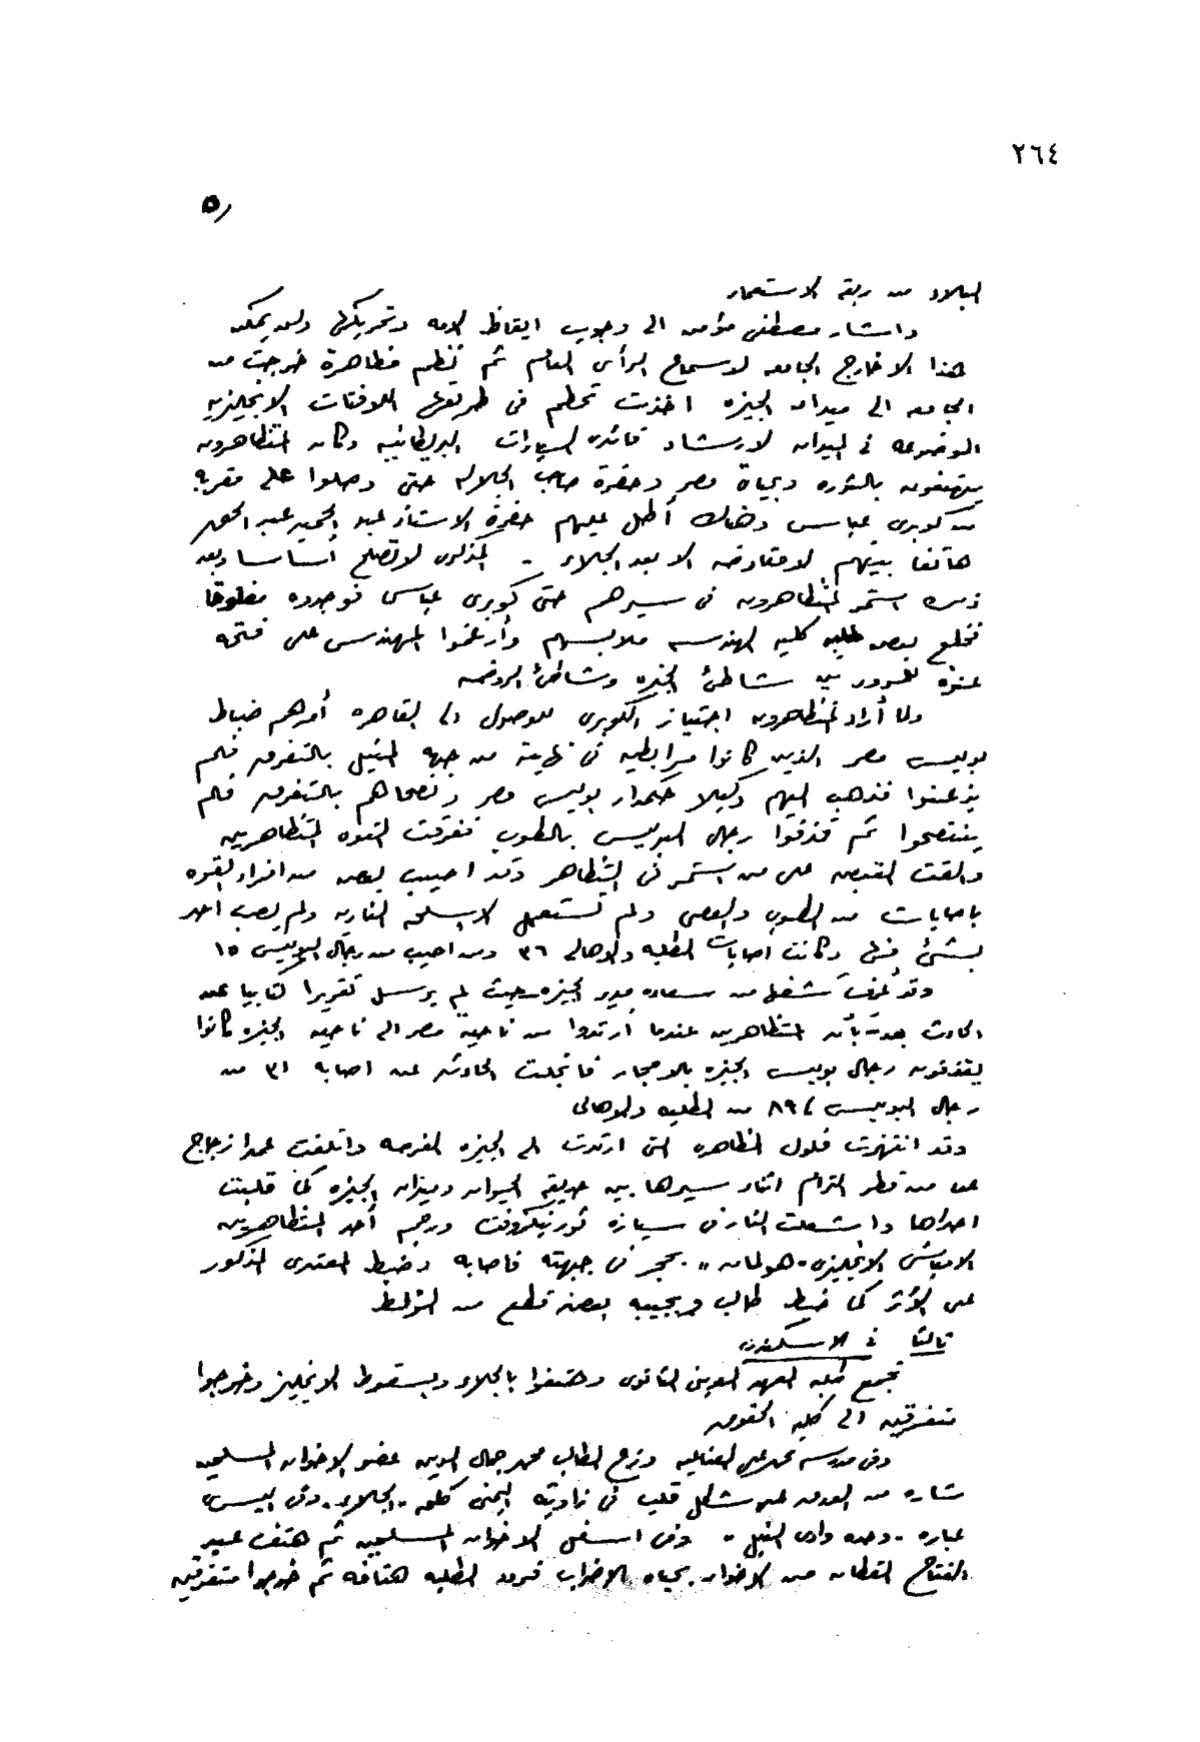 ٢٦٤
٥ر
البلاد من ربقة الاستعمار
واشار مصطفى مؤمن الى وجوب ايقاظ الامه وتحريكها ولن يمكن
هذا الا خارج الجامعه لاسماع الرأى العام ثم نظم مظاهرة خرجت من
الجامعه الى ميدان الجيزه اخذت تحطم فى طريقها اللافتات الانجليزيه
الموضوعه فى الميدان لارشاد قائدى السيارات البريطانيه وكان المتظاهرون
يتهتفون بالثوره وبحياة مصر وحضرة صاحب الجلاله حتى وصلوا على مقربه
من كوبرى عباس وهناك أطل عليهم حضرة الاستاذ عبد الحميد عبد الحق
هاتفا بينهم لا مفاوضه الا بعد الجلاء - المذكره لا تصلح أساسا وبعد
ذلك استمر المتظاهرون فى سيرهم حتى كوبرى عباس فوجدوه مفتوحا
فخلع بعض طلبه كليه الهندسه ملابسهم وأرغموا المهندس على فتحه
عنوة للمرور بين شاطئ الجيزه وشاطئ الروضه
ولما أراد المتظاهرون اجتياز الكوبرى للوصول الى القاهره أمرهم ضباط
بوليس مصر الذين كانوا مرابطين فى نهايته من جهه المنيل بالتفرق فلم
يذعنوا فذهب اليهم وكيلا حكمدار بوليس مصر ونصحاهم بالتفرق فلم
ينتصحوا ثم قذفوا رجال البوليس بالطوب ففرقت القوه المتظاهرين
والقت القبض على من استمر فى التظاهر وقد اصيب بعض من افراد القوه
باصابات من الطوب والعصى ولم تستعمل الاسلحه الناريه ولم يصب احد
بشئ منها وكانت اصابات الطلبه والاهالى ٣٦ ومن اصيب من رجال البوليس ١٥
وقد عرفت شغل من سعاده مدير الجيزه حيث لم يرسل تقريرا كتابيا عن
الحادث بعد بأن المتظاهرين عندما ارتدوا من ناحية مصر الى ناحيه الجيزه كانوا
يقذفون رجال بوليس الجيزه بالاحجار فانجلت الحادثه عن اصابه ٣١ من
رجال البوليس و ٨٩ من الطلبه والاهالى
وقد انتهزت فلول المظاهره التى ارتدت الى الجيزه الفرصه واتلفت عمدا زجاج
عدد من قطر الترام اثناء سيرها بين حديقة الحيوان وميدان الجيزه كما قلبت
احداها واشعلت النار فى سيارة لورى ورجم أحد المتظاهرين
الانباشى الانجليزى "هولمان" بحجر فى جبهته فاصابه وضبط المعتدى المذكور
على الأثر كما ضبط طالب وبجيبه بعض قطع من الزلط
ثالثا فى الاسكندريه
تجمع طلبه المعهد الدينى الثانوى وهتفوا بالجلاء وبسقوط الانجليز وخرجوا
متفرقين الى كلية الحقوق
وفى مدرسه محمد على الصناعيه وزع الطالب محمد جمال الدين عضو الاخوان المسلمين
شاره من الورق على شكل قلب فى زاويته اليمنى كلمه "الجلاء" وفى اليسرى
عباره "وحده وادى النيل" وفى اسفل الاخوان المسلمين ثم هتف عبد
الفتاح القطان من الاخوان بحياه الاضراب فردد الطلبه هتافه ثم خرجوا متفرقين